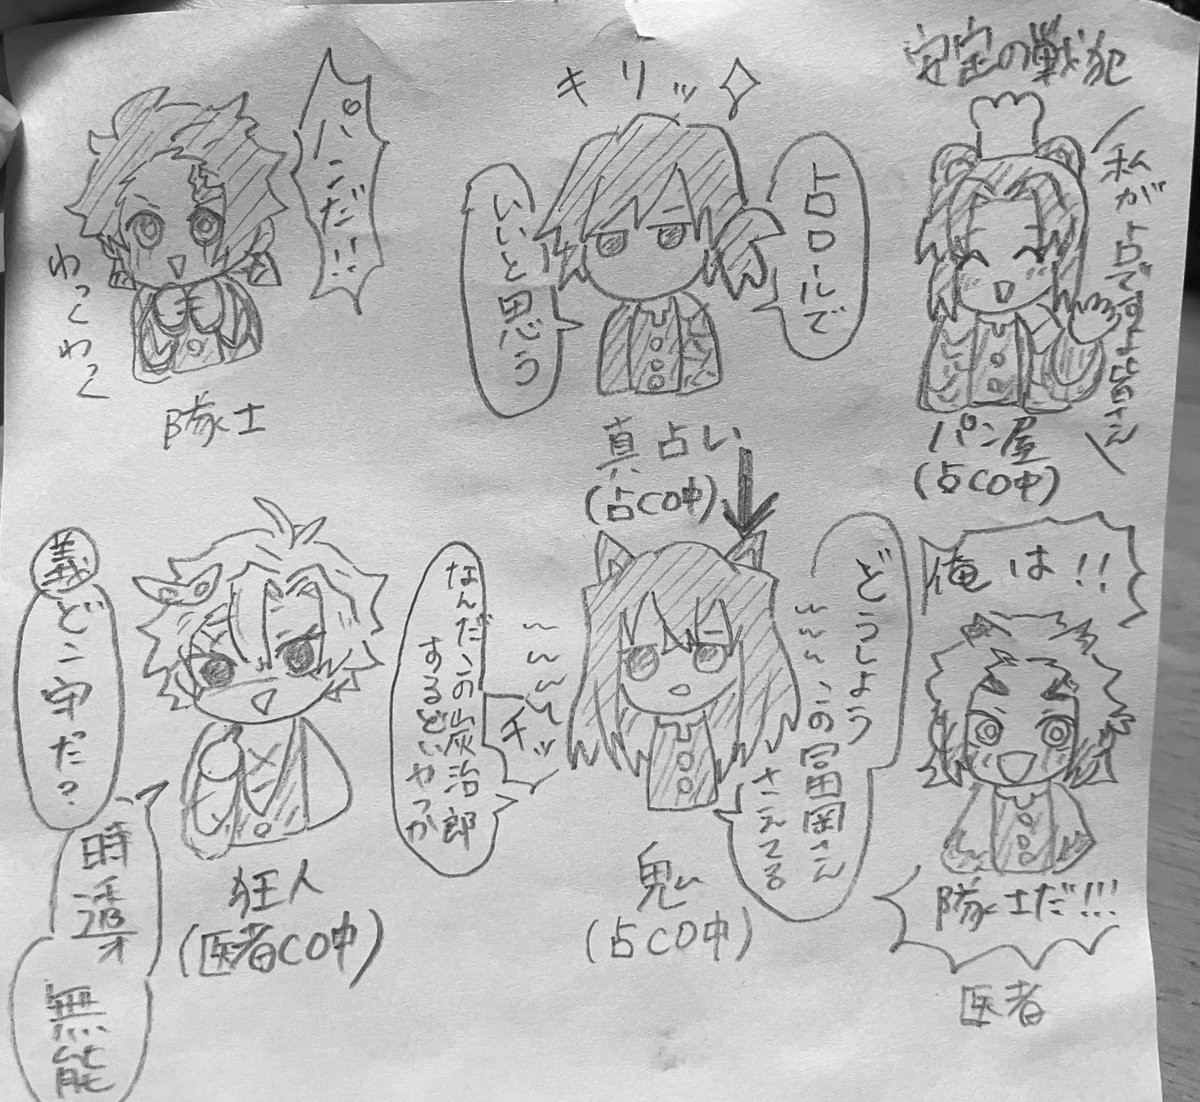 安定の戦犯
私が占ですよ皆さん
パン屋
(占CO中)
キリッ
占ロールで
いいと思う
真占い
(占CO中)
パンだ!!
わくわく
隊士
俺は!!
隊士だ!!!
医者
どうしよう
この冨岡さん
さえてる
チッ
なんだこの炭治郎
するどいやつか
鬼
(占CO中)
義どこ守だ?
時透
無能
狂人
(医者CO中)